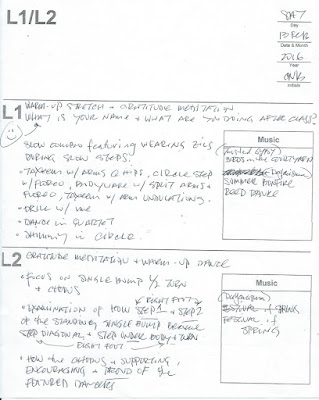 L1/L2
SAT
Day
13 FEB
Date & Month
2016
Year
Initials
L1
WARM-UP STRETCH + GRATITUDE MEDITATION
WHAT IS YOUR NAME + WHAT ARE YOU DOING AFTER CLASS?
SLOW COMBO FEATURING WEARING ZILS
DURING SLOW STEPS!
• TAXEEM w/ ARMS
CIRCLE STEP
w/ FLOREO, BODYWAVE w/ SPLIT ARMS +
FLOREO, TAXEEM w/ ARM UNDULATIONS.
• DRILL w/ ME
• DANCE in QUARTET
• in CIRCLE.
Music
BIRDS in the COURTYARD
SUMMER BONFIRE
REED DANCE
L2
GRATITUDE MEDITATION + WARM-UP DANCE
• FOCUS on SINGLE BUMP 1/2 TURN
+ CHORUS
RIGHT FOOT
• EXAMINATION of HOW STEP 1 + STEP 2
of the STANDING SINGLE BUMP became
STEP DIAGONAL + STEP UNDER BODY + TURN
RIGHT FOOT
• HOW the CHORUS + SUPPORTING,
ENCOURAGING + PROUD OF the
FEATURED DANCERS
Music
FESTIVAL of SPRING
FESTIVAL of
SPRING